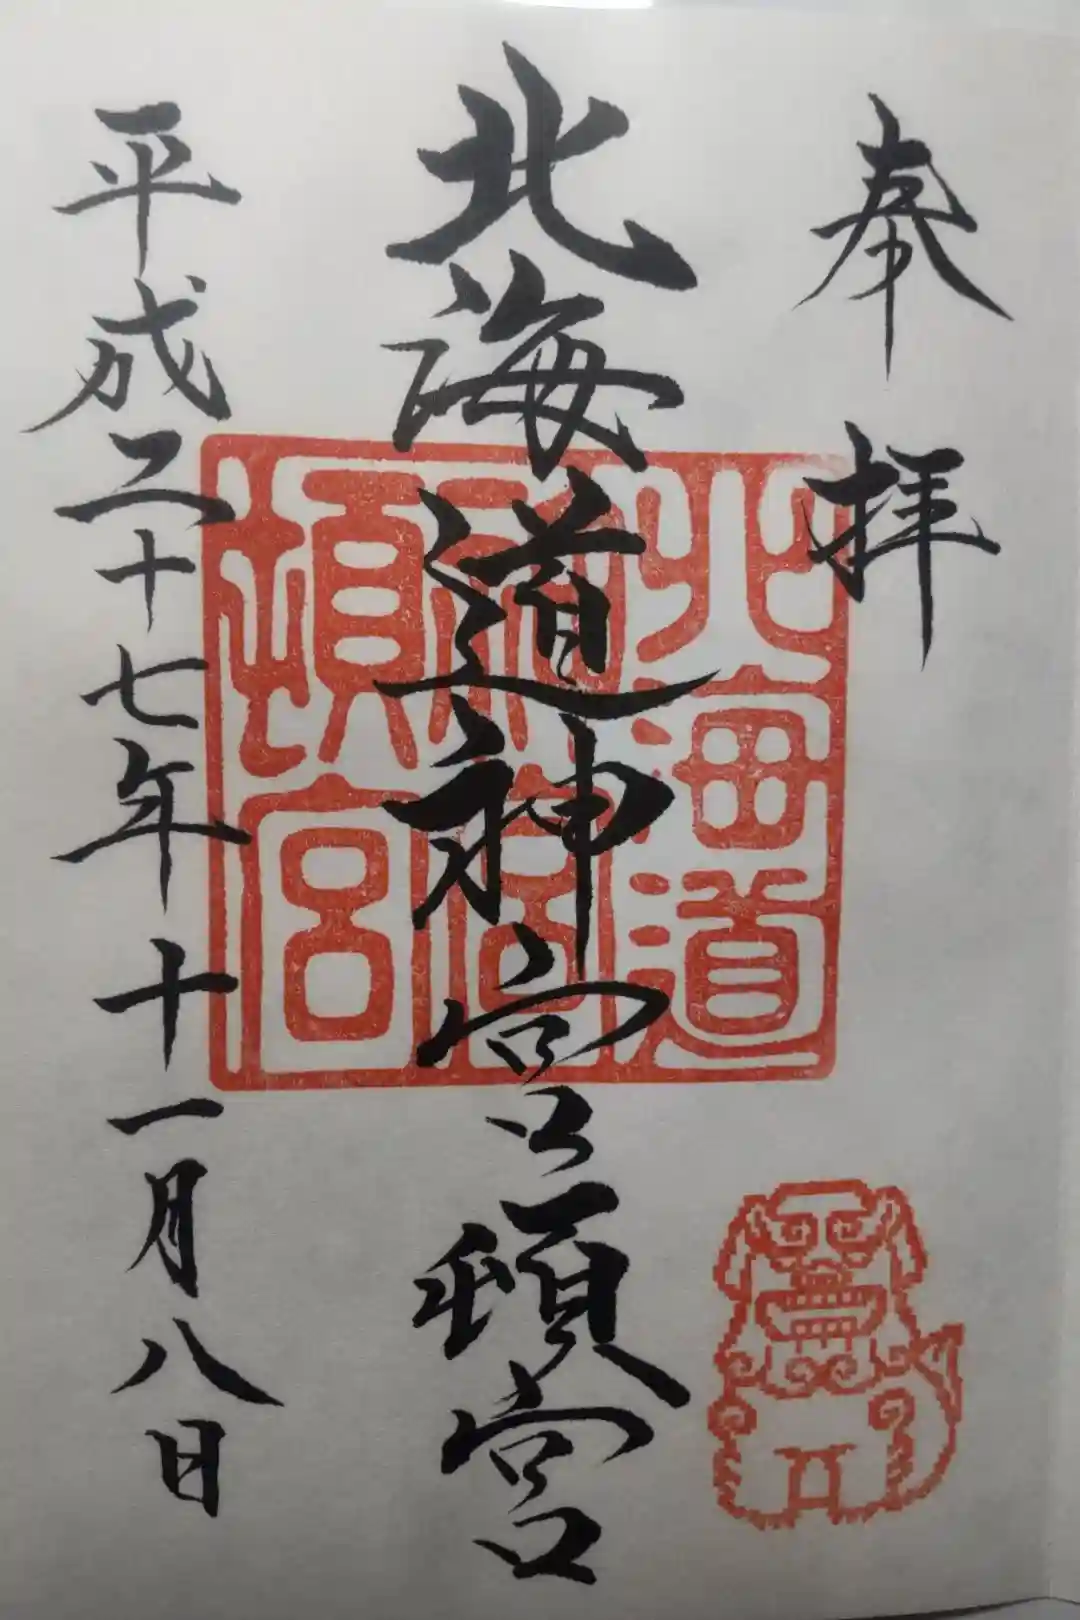 奉拝
北海道神宮頓宮
北海道
神宮
頓宮
平成二十七年十一月八日